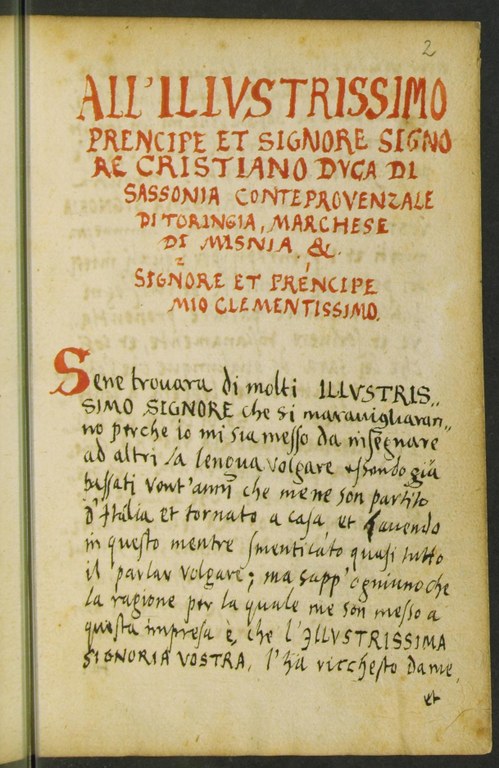 2
ALL'ILLVSTRISSIMO
PRENCIPE ET SIGNORE SIGNO
RE CRISTIANO DVCA DI
SASSONIA CONTE PROVENZALE
DI TORINGIA, MARCHESE
DI MISNIA. &.
SIGNORE ET PRENCIPE
MIO CLEMENTISSIMO.
Sene trouara di molti ILLVSTRIS,,
SIMO SIGNORE che si marauigliaran,,
no perche io mi sia messo da insegnare
ad altri la lengua volgare essendo già
passati vent'anni che mene son partito
d'Italia et tornato a casa et hauendo
in questo mentre smenticato quasi tutto
il parlar volgare; ma sapp' ogniuno che
la ragione per la quale me son messo a
questa impresa è, che l'ILLVSTRISSIMA
SIGNORIA VOSTRA, l'hà ricchesto da me,
et